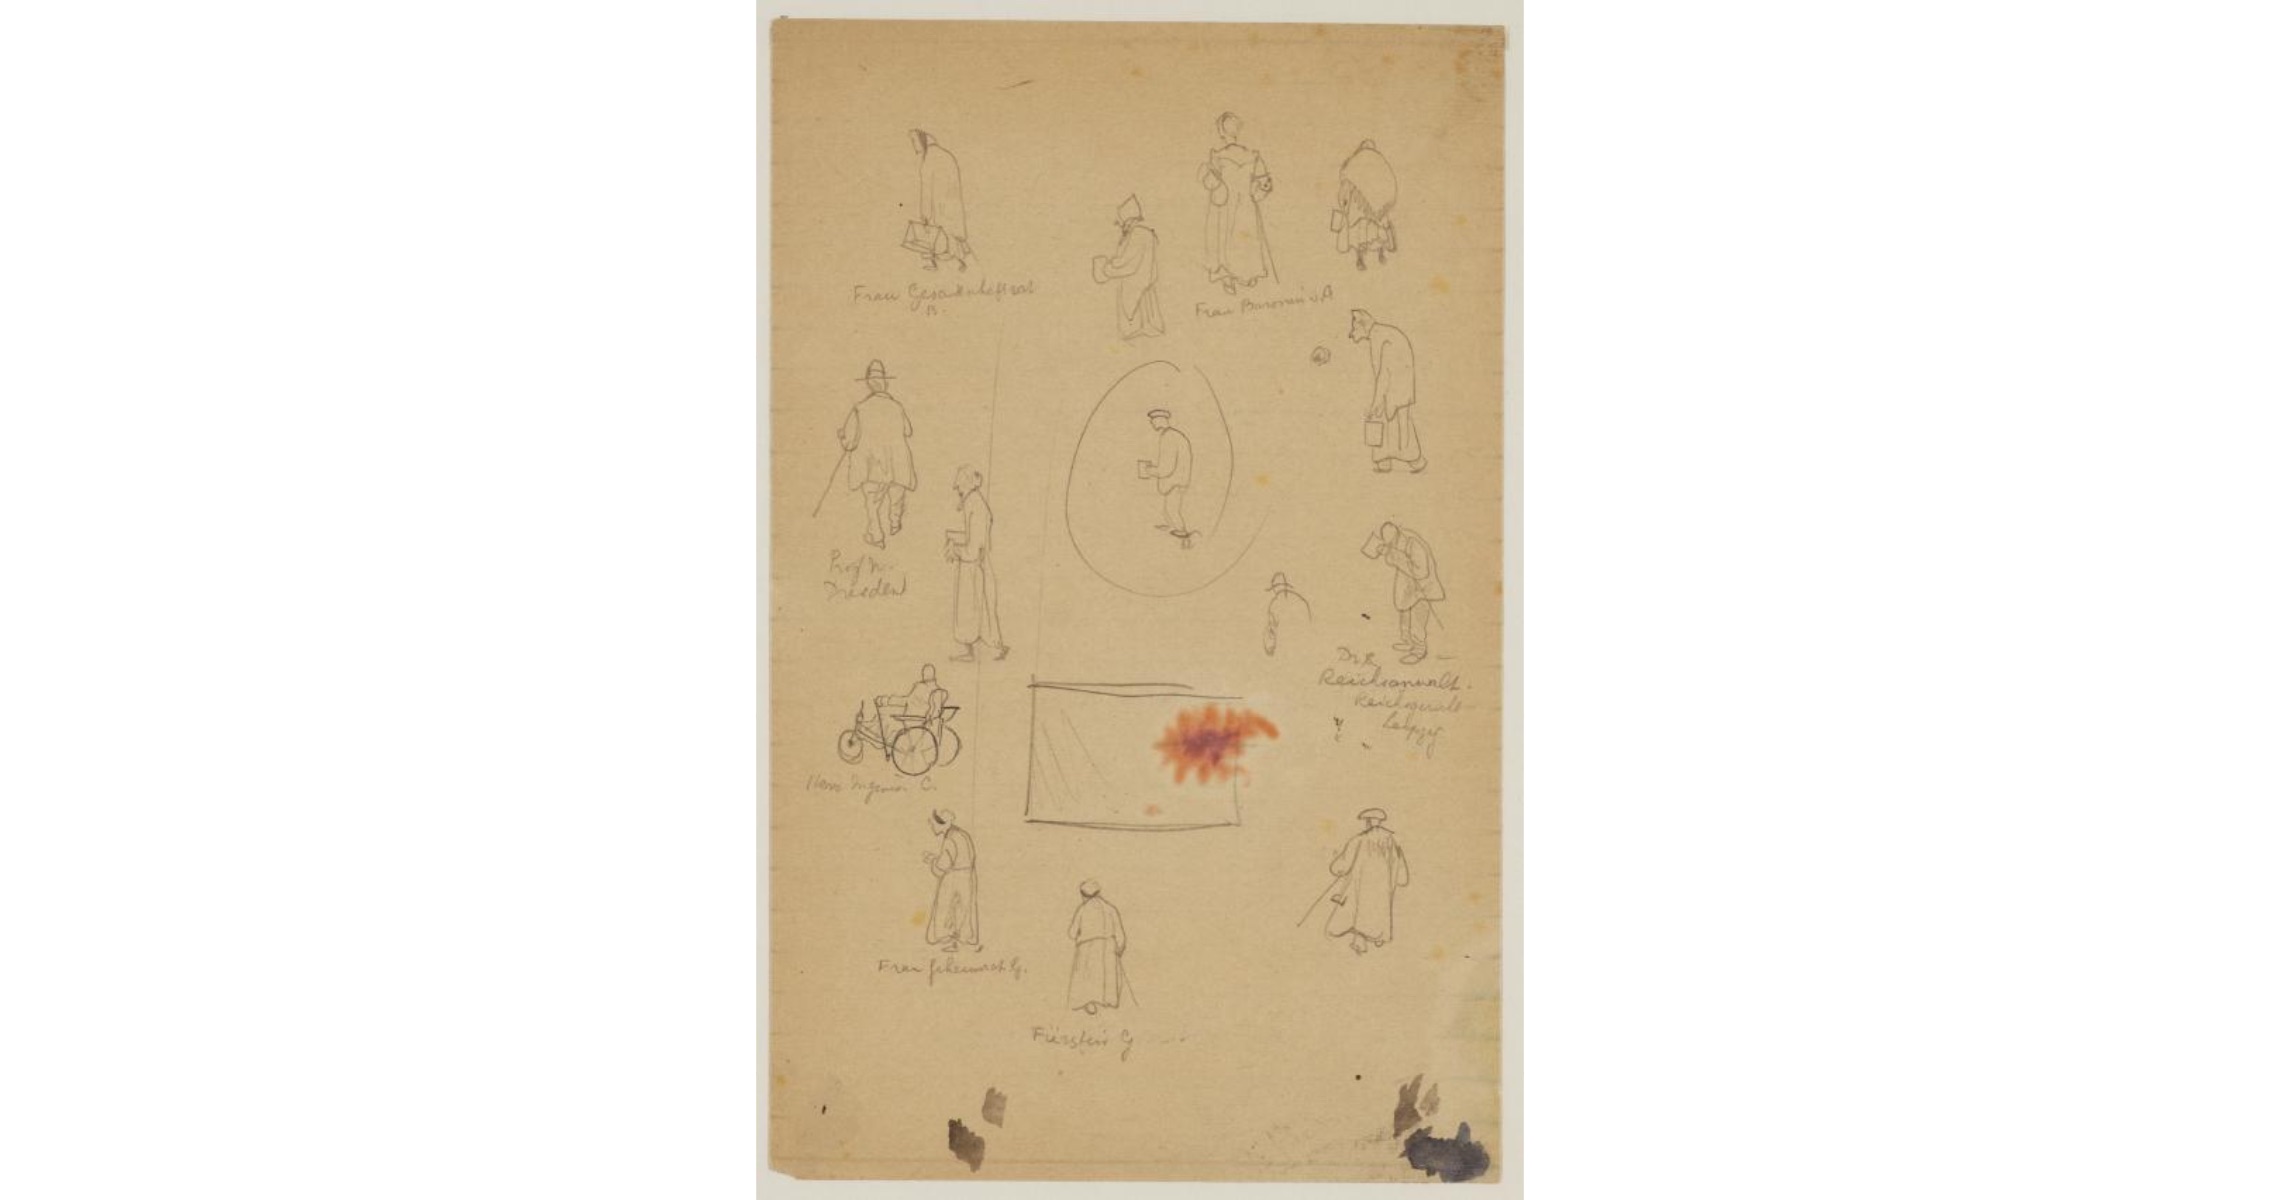 Frau Gesandschaftsrat
B.
Frau Baronin v. A
Prof. N.
Dresden
Dr. R.
Reichsanwalt.
Reichsgericht
Leipzig
Herr Ingenieur C.
Frau Geheimrat G.
Fürstin G